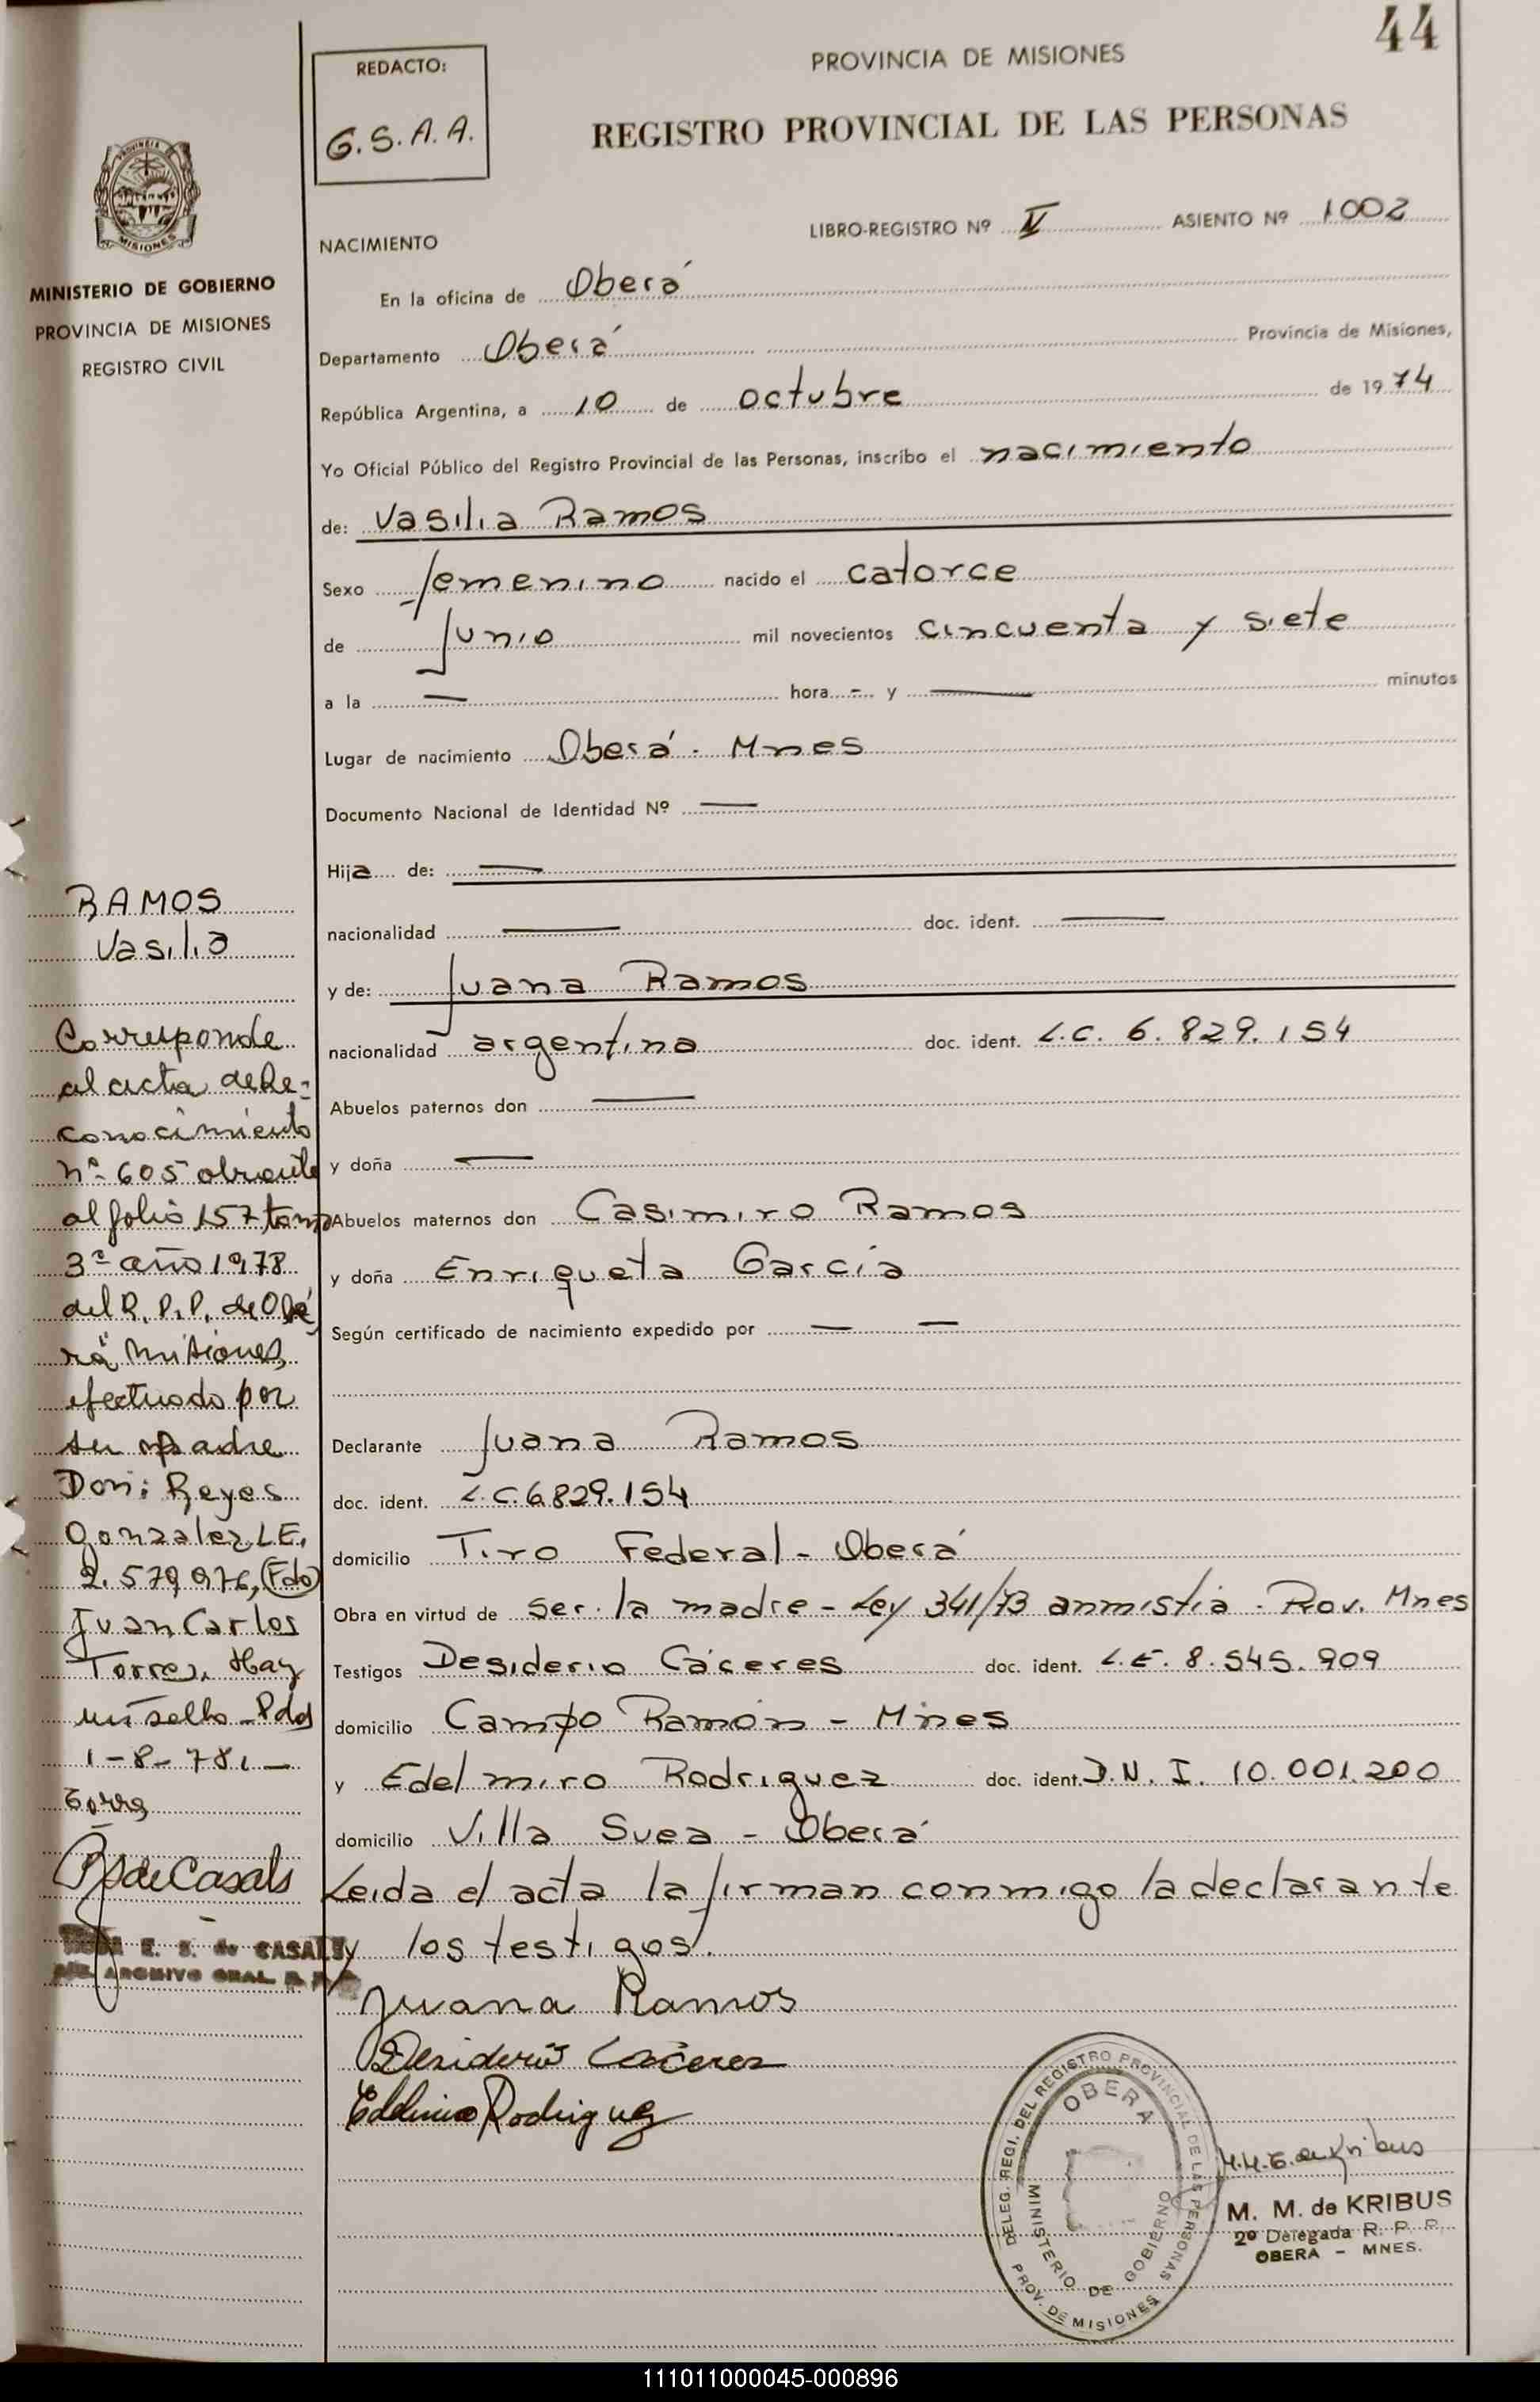 44
REDACTO:
G. S. A. A.
PROVINCIA DE MISIONES
REGISTRO PROVINCIAL DE LAS PERSONAS
MISIONES
MINISTERIO DE GOBIERNO
PROVINCIA DE MISIONES
REGISTRO CIVIL
LIBRO-REGISTRO Nº V ASIENTO Nº 1002
NACIMIENTO
En la oficina de Oberá
Departamento Oberá Provincia de Misiones,
República Argentina, a 10 de octubre de 1974
Yo Oficial Público del Registro Provincial de las Personas, inscribo el nacimiento
de: Vasilia Ramos
Sexo femenino nacido el catorce
de Junio mil novecientos cincuenta y siete
a la — hora - y — minutos
Lugar de nacimiento Oberá - Mnes
Documento Nacional de Identidad Nº —
Hija de: —
nacionalidad — doc. ident. —
y de: Juana Ramos
nacionalidad argentina doc. ident. L.C. 6.829.154
Abuelos paternos don —
y doña —
Abuelos maternos don Casimiro Ramos
y doña Enriqueta García
Según certificado de nacimiento expedido por — —
Declarante Juana Ramos
doc. ident. L.C. 6.829.154
domicilio Tiro Federal - Oberá
Obra en virtud de ser la madre - Ley 341/73 anmistia - Rov. Mnes
Testigos Desiderio Cáceres doc. ident. L.E. 8.545.909
domicilio Campo Ramón - Mnes
y Edelmiro Rodriguez doc. ident. D.N.I. 10.001.200
domicilio Villa Svea - Oberá
Leida el acta la firman conmigo la declarante
y los testigos.
Juana Ramos
Desiderio Caceres
Rodriguez
RAMOS
Vasilia
Corresponde
al acta de Re-
conocimiento
nº 605 obrante
al folio 157 tomo
3º año 1978
del R. P. P. de Obe
rá Misiones,
efectuado por
su padre
Don: Reyes
Gonzalez L.E.
2.579.976, (Fdo)
Juan Carlos
Torres. Hay
un sello - Pdas
1-8-78. —
E. S. de CASALS
ARCHIVO GRAL. R. P.
DELEG. REGI. DEL REGISTRO PROVINCIAL DE LAS PERSONAS
OBERA
MINISTERIO DE GOBIERNO
PROV. DE MISIONES
M. M. de KRIBUS
2º Delegada R. P. P.
OBERA - MNES.
111011000045-000896